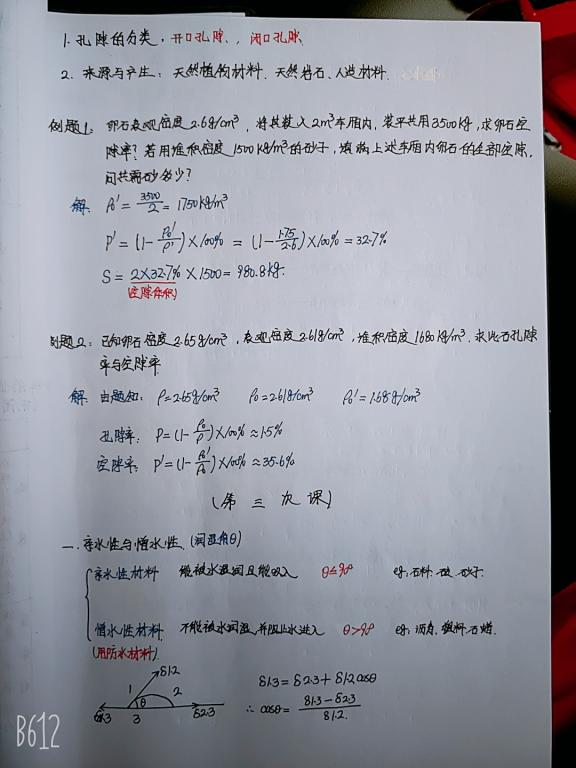 1. 孔隙的分类：开口孔隙、闭口孔隙
2. 来源与产生：天然植物材料、天然岩石、人造材料
例题1：卵石表观密度2.6g/cm³，将其装入2m³车厢内，装平共用3500kg，求卵石空
隙率？若用堆积密度1500kg/m³的砂子，填满上述车厢内卵石的全部空隙，
问共需砂多少？
解：ρ₀′=3500/2=1750kg/m³
P′=(1-ρ₀′/ρ′)×100%=(1-1.75/2.6)×100%=32.7%
S=2×32.7%×1500=980.8kg.
(空隙体积)
例题2：已知卵石密度2.65g/cm³，表观密度2.61g/cm³，堆积密度1680kg/m³，求此石孔隙
率与空隙率
解：由题知：ρ=2.65g/cm³ ρ₀=2.61g/cm³ ρ₀′=1.68g/cm³
孔隙率：P=(1-ρ₀/ρ)×100%≈1.5%
空隙率：P′=(1-ρ₀′/ρ₀)×100%≈35.6%
(第三次课)
一.亲水性与憎水性(润湿角θ)
亲水性材料 能被水润湿且能吸入 θ≤90° eg:石料、砂子.
憎水性材料 不能被水润湿,并阻止水进入 θ>90° eg:沥青、塑料、石蜡.
(用防水材料)
δ1.2
1 θ 2
δ1.3 3 δ2.3
δ1.3=δ2.3+δ1.2cosθ
∴cosθ=δ1.3-δ2.3/δ1.2.
B612